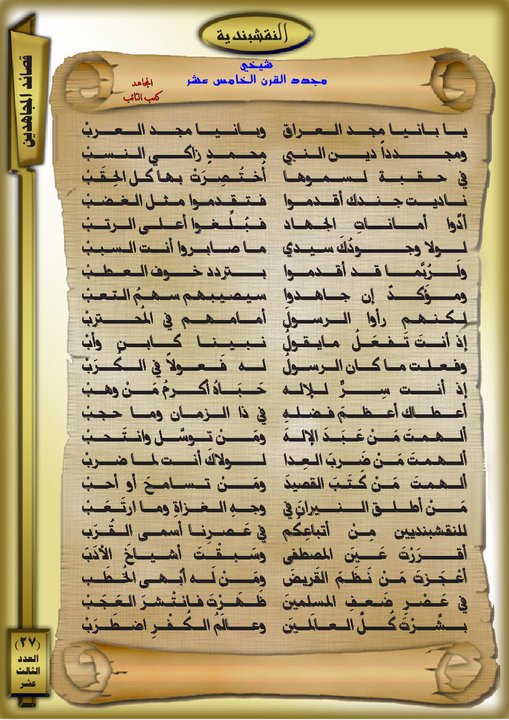 النقشبندية
قصائد المجاهدين
شيخي
مجدد القرن الخامس عشر
المجاهد
يا بانيا مجد العراق وبانيا مجد العربْ
ومجدداً دين النبي محمدٍ زاكي النسبْ
في حقبة لسموها أختُصِرَتْ بها كل الحِقَبْ
ناديت جندك أقدموا فتقدموا مثل الغضبْ
أدّوا أمانات الجهاد فبُلِّغوا أعلى الرتبْ
لولا وجودك سيدي ما صابروا أنت السببْ
ولَرُبَّما قد أقدموا بتردد خوف العطبْ
ومؤكدٌ إن جاهدوا سيصيبهم سهمُ التعبْ
لكنهم رأوا الرسولَ أمامهم في المُحتربْ
إذ أنت تَفعَلُ مايقولُ نبينا كابنٍ وأبْ
وفعلت ما كان الرسولُ له فَعولاً في الكُرَبْ
إذ أنت سِرٌّ للإله حَبَاهُ أكرمُ مَنْ وهبْ
أعطاك أعظمَ فضلهِ في ذا الزمان وما حجبْ
ألهمتَ مَنْ عَبَدَ الإلهَ ومَنْ توسَّل وانتَحبْ
ألهمتَ مَنْ ضربَ العِدا لولاك أنت لما ضربْ
ألهمتَ مَنْ كَتَبَ القصيدَ ومَنْ تسامحَ أو أحبْ
مَنْ أطلق النيرانَ في وجهِ الغزاةِ وما ارتَعَبْ
للنقشبنديين مِنْ أتباعكُم في عَصرِنا أسمى القُرَبْ
أقرَرْتَ عَينَ المصطفى وسَبقْتَ أشياخَ الأدَبْ
أعجَزتَ مَنْ نَظَمَ القَريضَ ومَنْ لَه أبهى الخُطَبْ
في عَصْرِ ضَعفِ المسلمينَ ظَهَرْتَ فانتشرَ العَجَبْ
بشَّرْتَ كُلَّ العالمينَ وعالَمُ الكُفرِ اضطَرَبْ
(٢٧)
العدد
الثالث
عشر